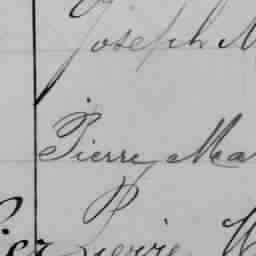 Joseph M
Pierre Ma
Pierre